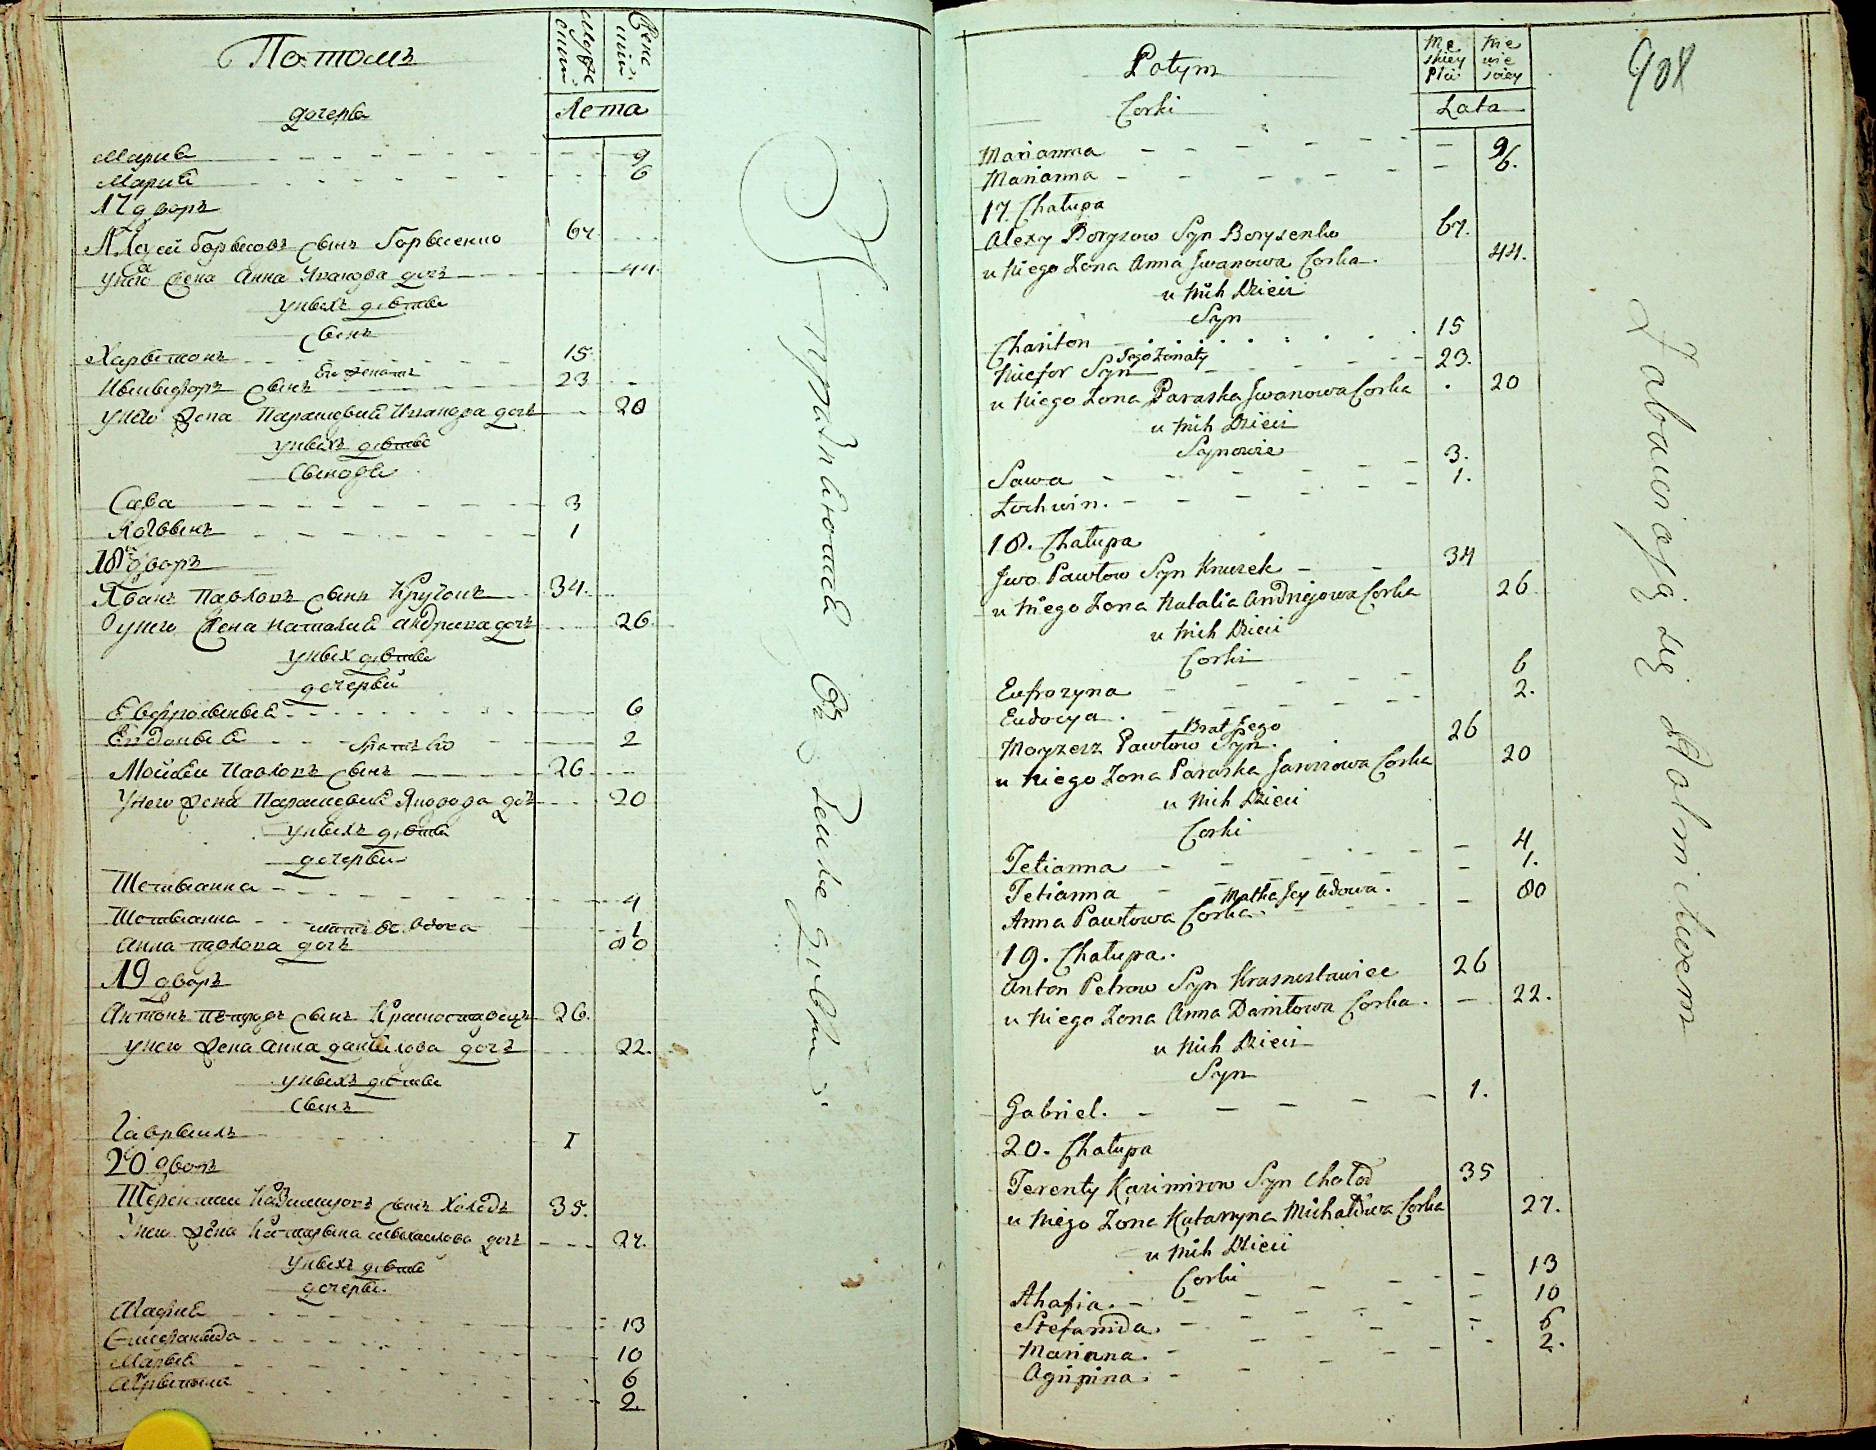 Потомъ
Мужескій
Женскій
Лета
дочери
Марія 9
Марія 6
17 дворъ
Алексей Борисовъ сынъ Борисенко 67
у него жена Анна Иванова дочь 44
у нихъ дети
сынъ
Харитонъ 15
Его женатъ
Никифоръ сынъ 23
у него жена Параскевия Иванова дочь 20
у нихъ дети
сынове
Сава 3
Логвинъ 1
18 дворъ
Иванъ Павловъ сынъ 34
у него жена Наталия Андриева дочь 26
у нихъ дети
дочери
Евфросиния 6
Евдокия 2
братъ его
Мойсей Павловъ сынъ 26
у него жена Параскевия дочь 20
у нихъ дети
дочери
Тетианна 4
Тетианна 1
мать ея вдова
Анна Павлова дочь 80
19 дворъ
Антонъ Петровъ сынъ Красноставецъ 26
у него жена Анна Данилова дочь 22
у нихъ дети
сынъ
Гавриилъ 1
20 дворъ
Терентий Казимировъ сынъ Холодъ 35
у него жена Катарина Михаилова дочь 27
у нихъ дети
дочери
Агафия 13
Стефанида 10
Мария 6
Агрипина 2
Упражняются въ земледелии
Potym
Męskiey Płci
Niewieściey
Lata
Corki
Marianna 9
Marianna 6.
17. Chałupa
Alexy Borysow Syn Borysenko 67.
u niego Zona Anna Jwanowa Corka. 44.
u nich Dzieci
Syn
Chariton 15
Jego Zonaty
Nicefor Syn 23.
u niego Zona Paraska Jwanowa Corka 20
u nich Dzieci
Synowie
Sawa 3.
Łochwin. 1.
18. Chałupa
Jwo Pawłow Syn Knurek 34
u niego Zona Natalia Andriejowa Corka 26
u nich Dzieci
Corki
Eufrozyna 6
Eudocya. 2.
Brat Jego
Moyzesz Pawłow Syn. 26
u niego Zona Paraska Corka 20
u nich Dzieci
Corki
Tetianna 4
Tetianna 1.
Matka Jey Wdowa.
Anna Pawłowa Corka 80
19. Chałupa.
Anton Petrow Syn Krasnostawiec 26
u niego Zona Anna Daniłowa Corka. 22.
u nich Dzieci
Syn
Gabriel. 1.
20. Chałupa
Terenty Kazimirow Syn Chołod 35
u niego Zona Katarzyna Michałowa Corka 27.
u nich Dzieci
Corki
Ahafia. 13
Stefanida. 10
Marianna. 6
Agripina. 2.
Zabawiają się Rolnictwem